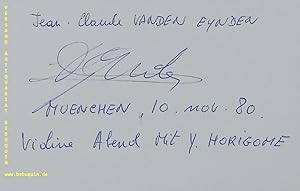 Jean-Claude VANDEN EYNDEN
MUENCHEN, 10. NOV. 80.
Violine Abend Mit Y. HORIGOME
VERSAND ANTIQUARIAT BEBUQUIN
www.bebuquin.de